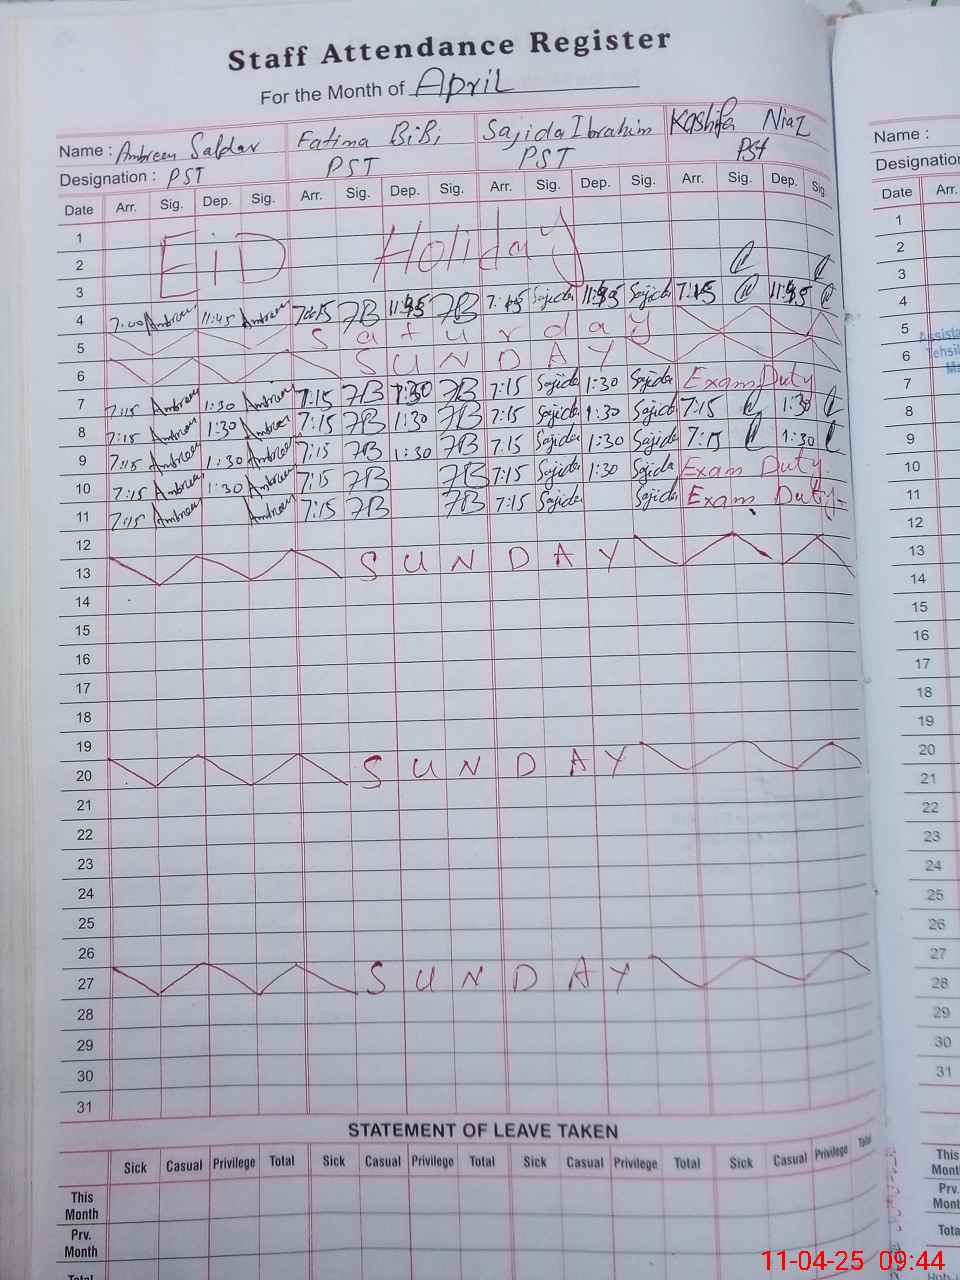 Staff Attendance Register
For the Month of April
Name : Ambreen Safdar Fatima BiBi Sajida Ibrahim Kashifa Niaz
Designation : PST PST PST PST
Date Arr. Sig. Dep. Sig. Arr. Sig. Dep. Sig. Arr. Sig. Dep. Sig. Arr. Sig. Dep. Sig.
1
2 EiD Holiday
3
4 7:00 Ambreen 11:45 Ambreen FB FB Sajida Sajida
5 Saturday
6 SUNDAY
7 7:15 Ambreen 1:30 Ambreen 7:15 FB 1:30 FB 7:15 Sajida 1:30 Sajida Exam Duty
8 7:15 Ambreen 1:30 Ambreen 7:15 FB 1:30 FB 7:15 Sajida 1:30 Sajida 7:15 1:30
9 7:15 Ambreen 1:30 Ambreen 7:15 FB 1:30 FB 7:15 Sajida 1:30 Sajida 7:15 1:30
10 7:15 Ambreen 1:30 Ambreen 7:15 FB FB 7:15 Sajida 1:30 Sajida Exam Duty.
11 7:15 Ambreen Ambreen 7:15 FB FB 7:15 Sajida Sajida Exam Duty
12
13 SUNDAY
14
15
16
17
18
19
20 SUNDAY
21
22
23
24
25
26
27 SUNDAY
28
29
30
31
STATEMENT OF LEAVE TAKEN
Sick Casual Privilege Total Sick Casual Privilege Total Sick Casual Privilege Total Sick Casual Privilege Total
This Month
Prv. Month
Total
Name :
Designation
Date Arr.
1
2
3
4
5
6
7
8
9
10
11
12
13
14
15
16
17
18
19
20
21
22
23
24
25
26
27
28
29
30
31
This
Prv.
11-04-25 09:44